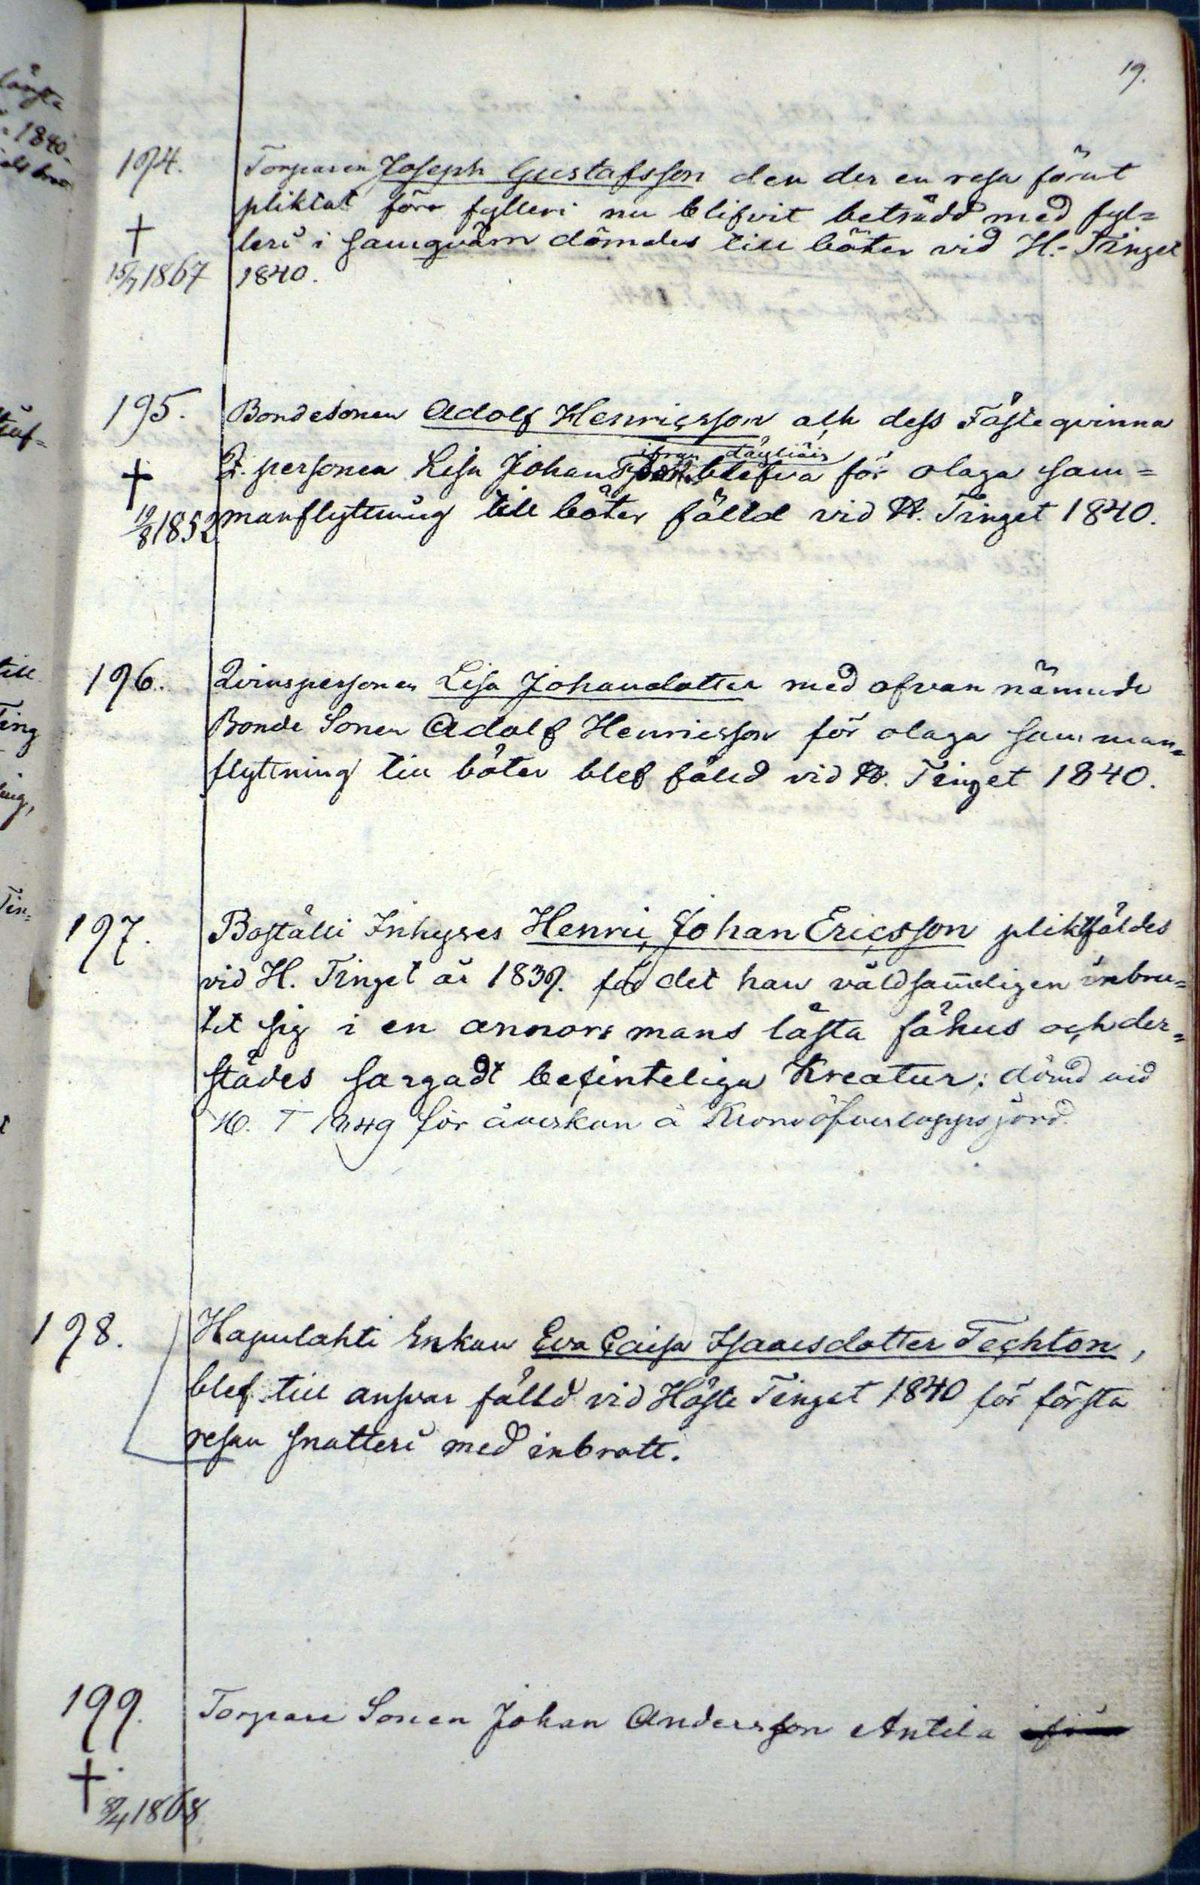 19.
194. Torparen Joseph Gustafsson den der en resa förut
pliktat före fylleri nu blifvit beträdd med fyl=
† leri i samqväm dömdes till böter vid H. Tinget
15/7 1867 1840.
195. Bondesonen Adolf Henricsson och dess Fästeqvinna
ifrån
† Q. personen Lisa Johans blefva för olaga sam=
19/8 1852 manflyttning till böter fälld vid H. Tinget 1840.
196. Qvinspersonen Lisa Johansdotter med ofvan nämnde
Bonde Sonen Adolf Henricsson för olaga samman=
flyttning till böter blef fälld vid H. Tinget 1840.
197. Boställs Inhyses Henric Johan Ericsson pliktfäldes
vid H. Tinget år 1839. för det han våldsammeligen inbru=
tit sig i en annors mans låsta fähus och der=
städes sargadt befinteliga Kreatur; dömd vid
H. T 1849 för åverkan å Kronoöfverloppsjord.
198. Hapulahti Enkan Eva Caisa Isaacsdotter Techton,
blef till ansvar fälld vid Höste Tinget 1840 för första
resan snatteri med inbrott.
199. Torpare Sonen Johan Andersson Antila
†
/4 1868